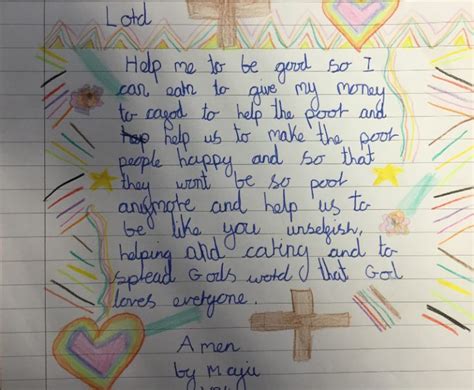 Lord
Help me to be good so I
can earn to give my money
to cafod to help the poor and
help us to make the poor
people happy and so that
they wont be so poor
anymore and help us to
be like you unselfish,
helping and caring and to
spread Gods word that God
loves everyone.
Amen
by